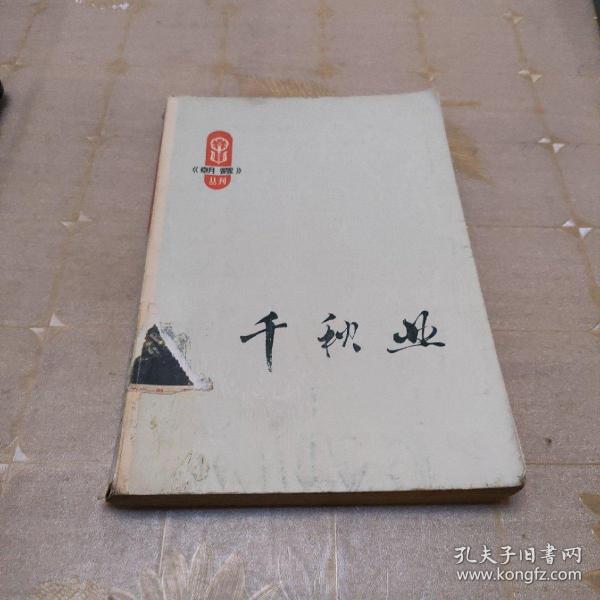 《朝霞》
丛刊
千秋业
孔夫子旧書网
www.kongfz.com